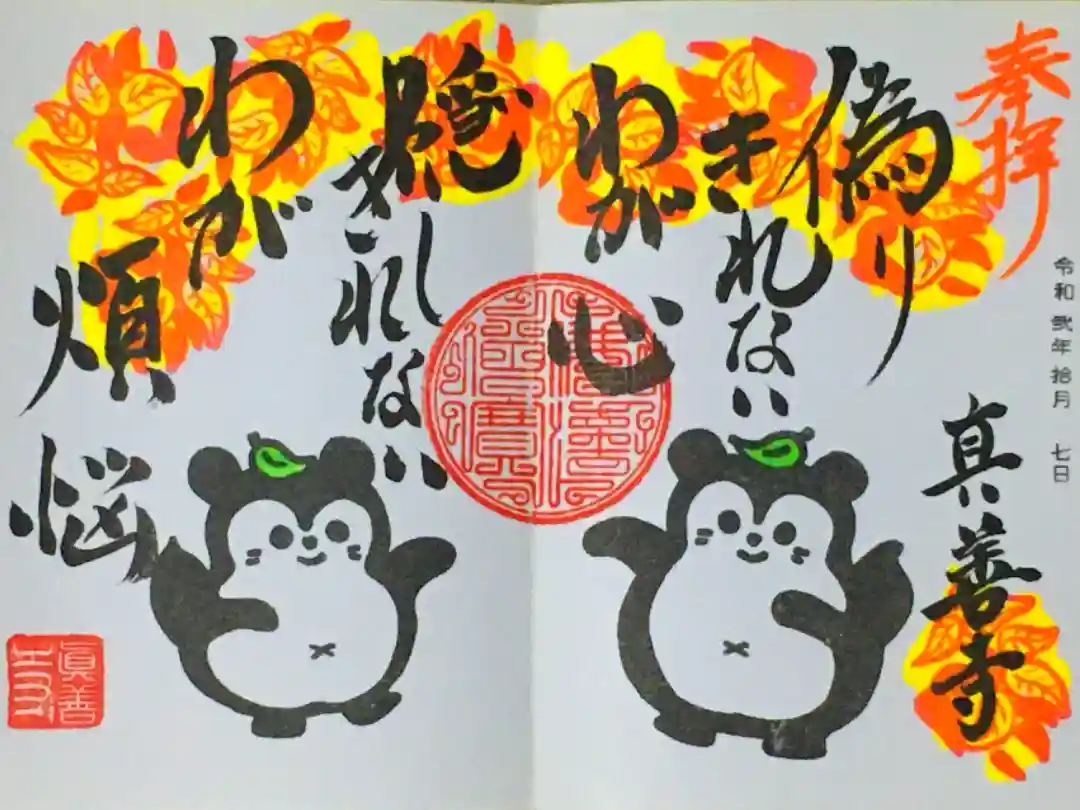 奉拝
令和弐年拾月 七日
真善寺
偽り
きれない
わが心
隠し
きれない
わが
煩悩
眞善寺